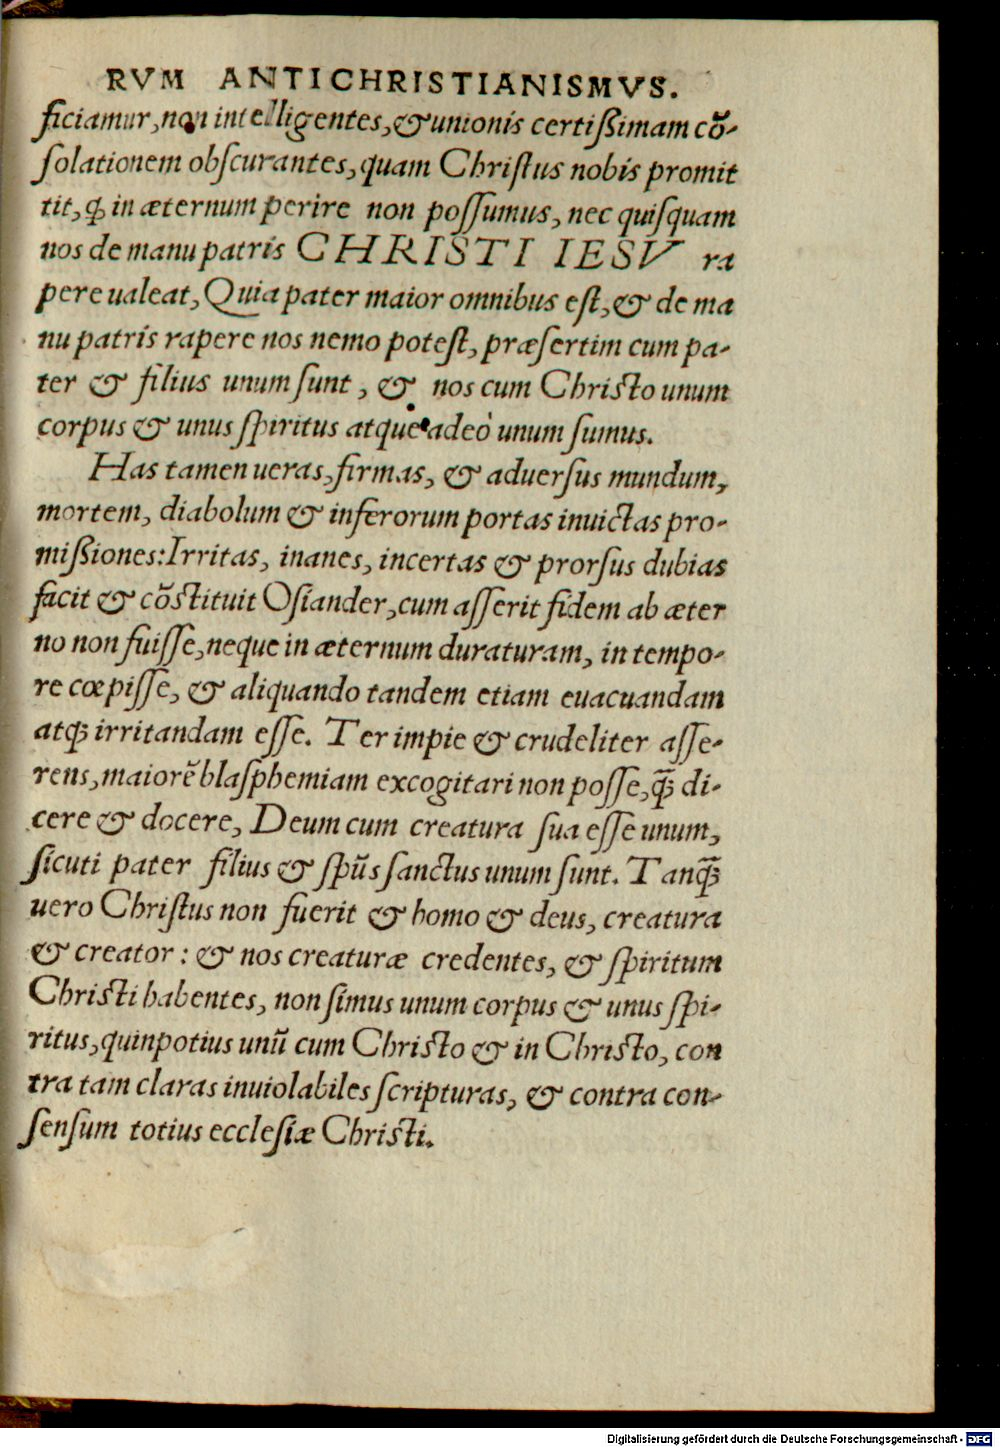 RVM ANTICHRISTIANISMVS.
ficiamur, non intelligentes, & unionis certißimam cō-
ſolationem obſcurantes, quam Chriſtus nobis promit
tit, ꝙ in æternum perire non poſſumus, nec quiſquam
nos de manu patris CHRISTI IESV ra
pere ualeat, Quia pater maior omnibus eſt, & de ma
nu patris rapere nos nemo poteſt, præſertim cum pa-
ter & filius unum ſunt, & nos cum Chriſto unum
corpus & unus ſpiritus atque adeò unum ſumus.
Has tamen ueras, firmas, & aduerſus mundum,
mortem, diabolum & inferorum portas inuictas pro-
mißiones: Irritas, inanes, incertas & prorſus dubias
facit & cōſtituit Oſiander, cum aſſerit fidem ab æter
no non fuiſſe, neque in æternum duraturam, in tempo-
re cœpiſſe, & aliquando tandem etiam euacuandam
atqꝫ irritandam eſſe. Ter impie & crudeliter aſſe-
rens, maiorē blaſphemiam excogitari non poſſe, q̄ꝫ di-
cere & docere, Deum cum creatura ſua eſſe unum,
ſicuti pater filius & ſpūs ſanctus unum ſunt. Tanq̄ꝫ
uero Chriſtus non fuerit & homo & deus, creatura
& creator: & nos creaturæ credentes, & ſpiritum
Chriſti habentes, non ſimus unum corpus & unus ſpi-
ritus, quinpotius unū cum Chriſto & in Chriſto, con
tra tam claras inuiolabiles ſcripturas, & contra con-
ſenſum totius eccleſiæ Chriſti.
Digitalisierung gefördert durch die Deutsche Forschungsgemeinschaft - DFG